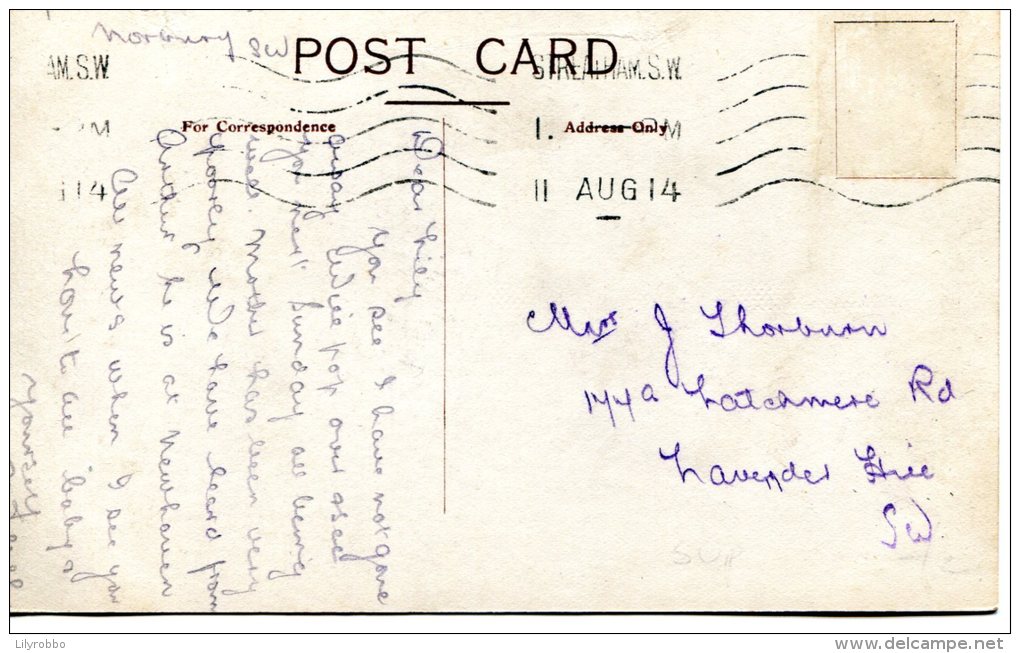 Norbury SW
POST CARD
AM.S.W.
STREATHAM.S.W.
For Correspondence
Address Only
1. PM
11 AUG 14
Dear Lily
You see I have not gone
away. Will pop over & see
you next Sunday all being
well. Mother has been very
poorly. We have heard from
Arthur he is at Newhaven
All news when I see you
Love to all baby's
Yours
Mrs J Thorburn
174a Latchmere Rd
Lavender Hill
SW
Lilyrobbo
www.delcampe.net